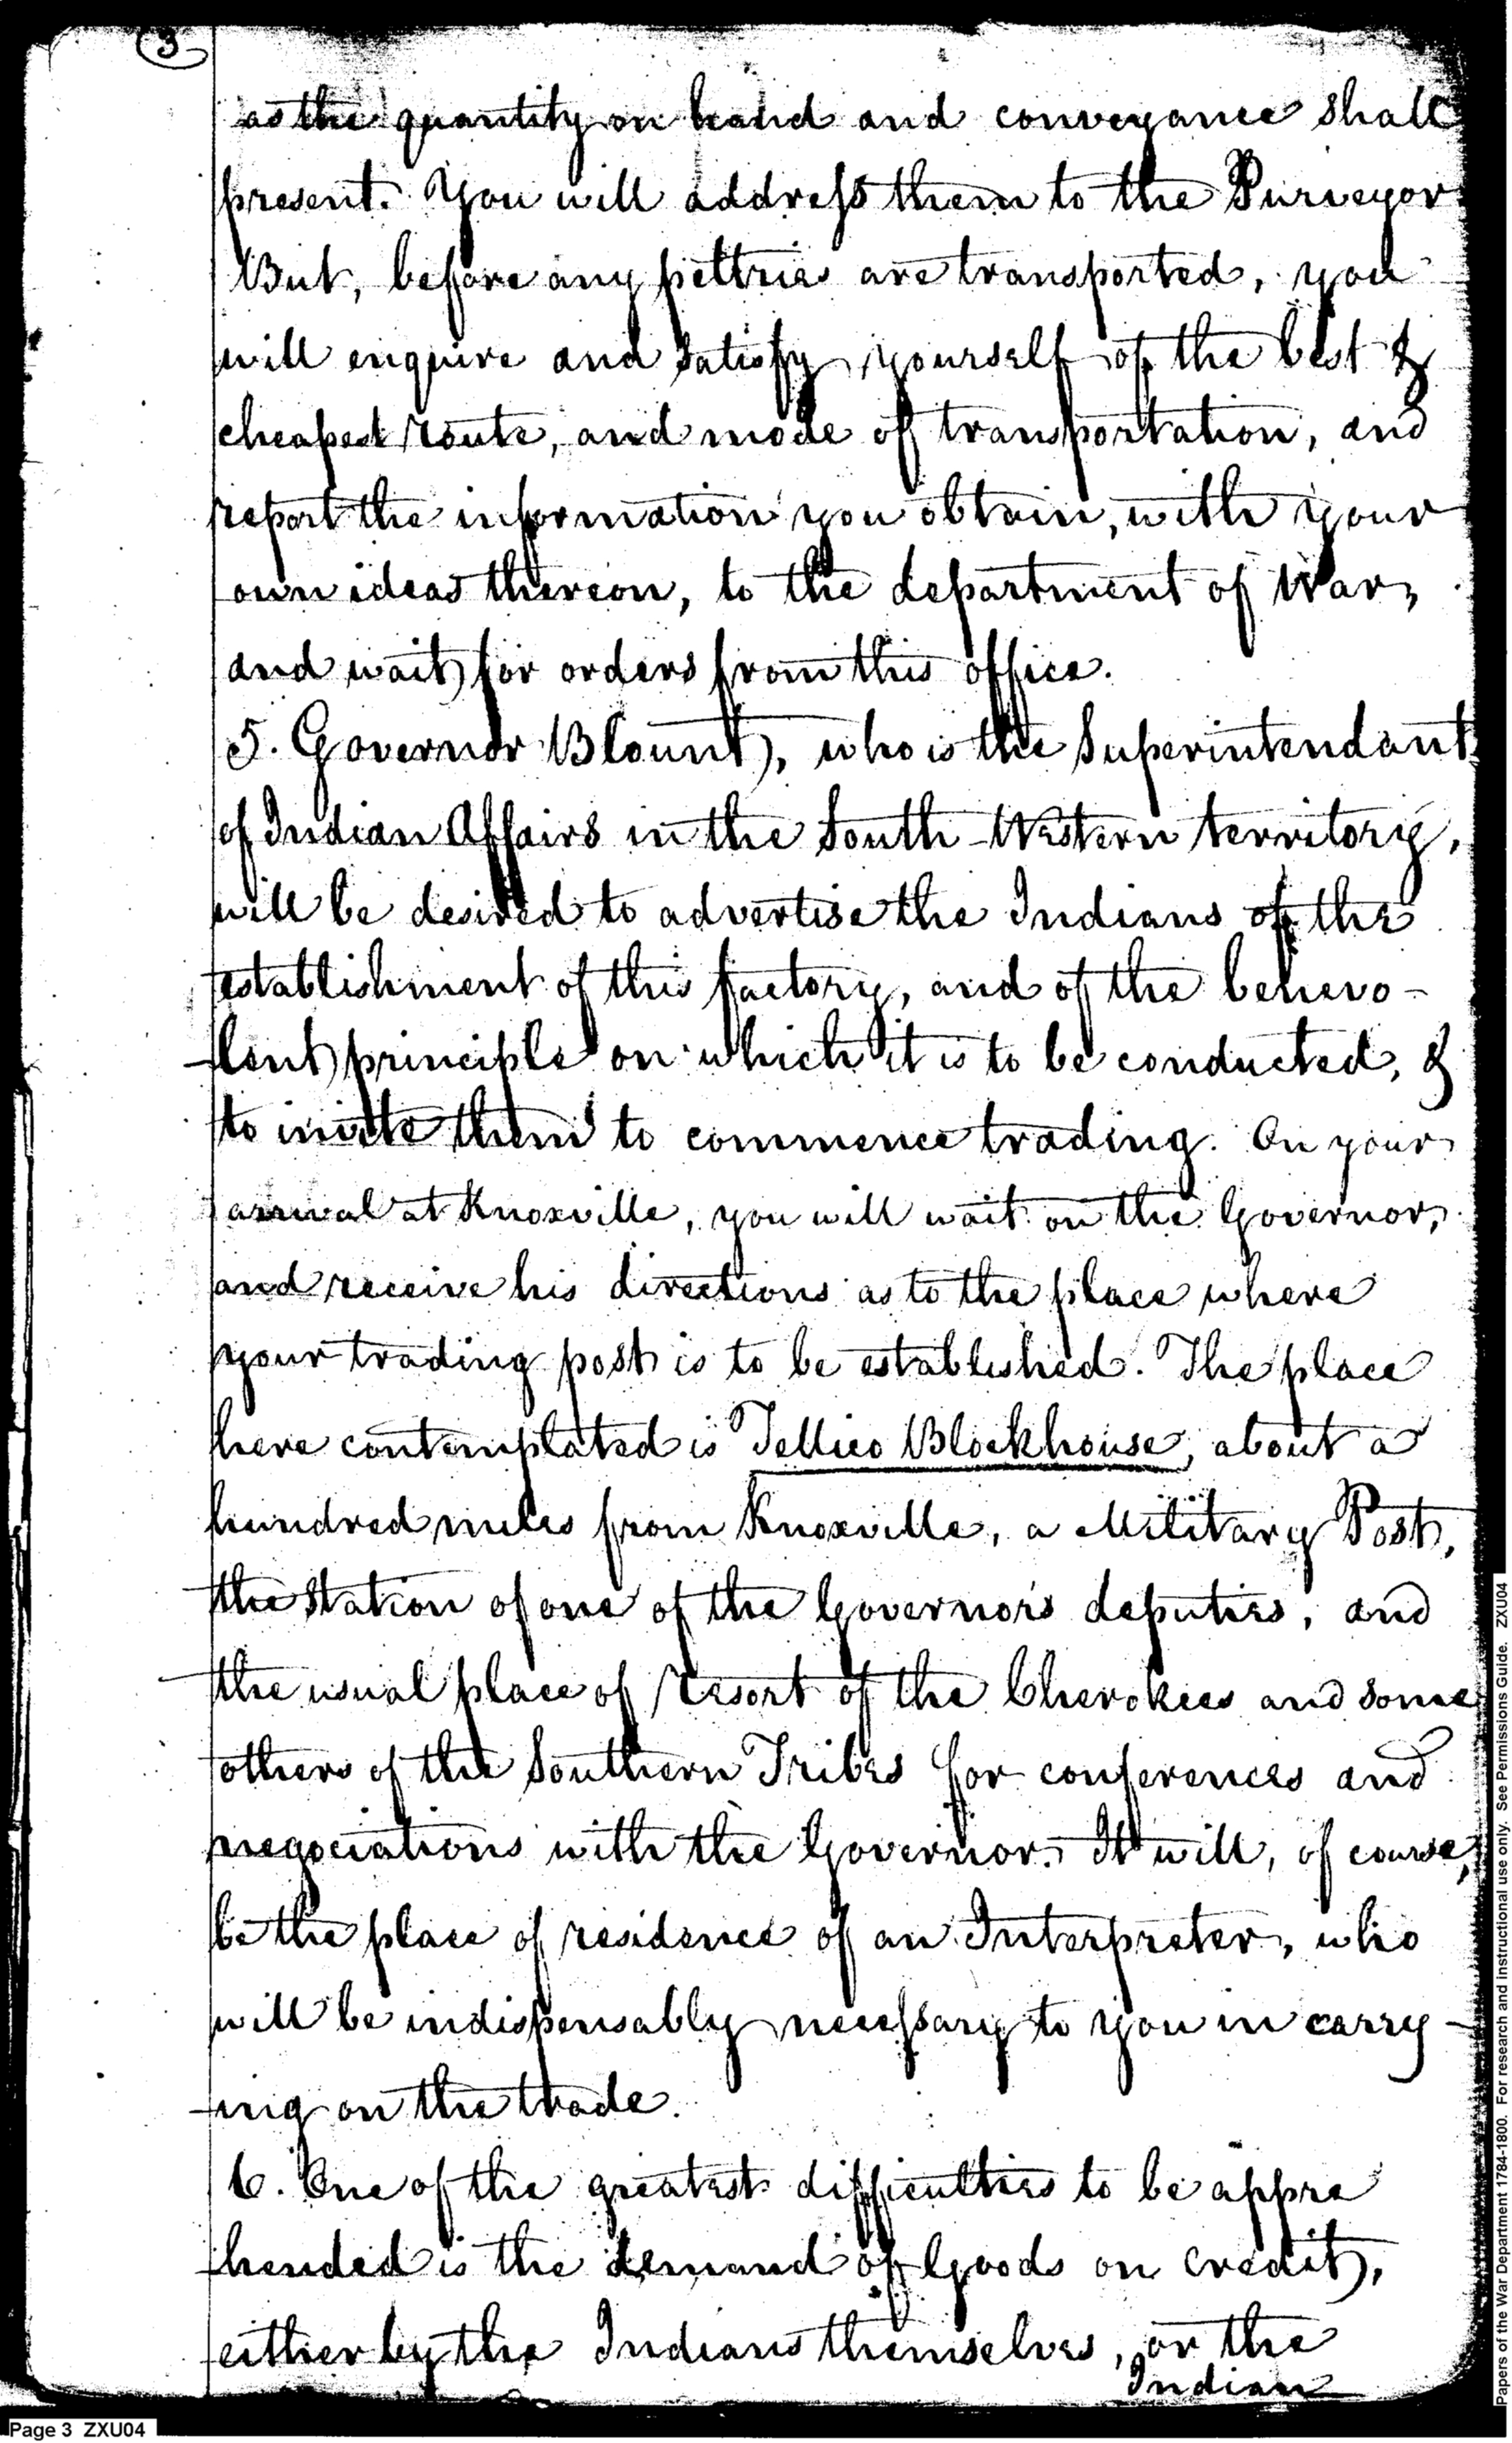 3
as the quantity on hand and conveyance shall
present. You will address them to the Purveyor
But, before any peltries are transported, you
will enquire and satisfy yourself of the best &
cheapest route, and mode of transportation, and
report the information you obtain, with your
own ideas thereon, to the department of War,
and wait for orders from this office.
5. Governor Blount, who is the Superintendant
of Indian Affairs in the South-Western territory,
will be desired to advertise the Indians of the
establishment of this factory, and of the benevo-
lent principle on which it is to be conducted, &
to invite them to commence trading. On your
arrival at Knoxville, you will wait on the Governor,
and receive his directions as to the place where
your trading post is to be established. The place
here contemplated is Tellico Blockhouse, about a
hundred miles from Knoxville, a Military Post,
the station of one of the Governors deputies, and
the usual place of resort of the Cherokees and some
others of the Southern Tribes for conferences and
negociations with the Governor. It will, of course,
be the place of residence of an Interpreter, who
will be indispensably necessary to you in carry-
ing on the trade.
6. One of the greatest difficulties to be appre
hended is the demand of Goods on credit,
either by the Indians themselves, or the
Indian
Page 3 ZXU04
Papers of the War Department 1784-1800. For research and instructional use only. See Permissions Guide. ZXU04